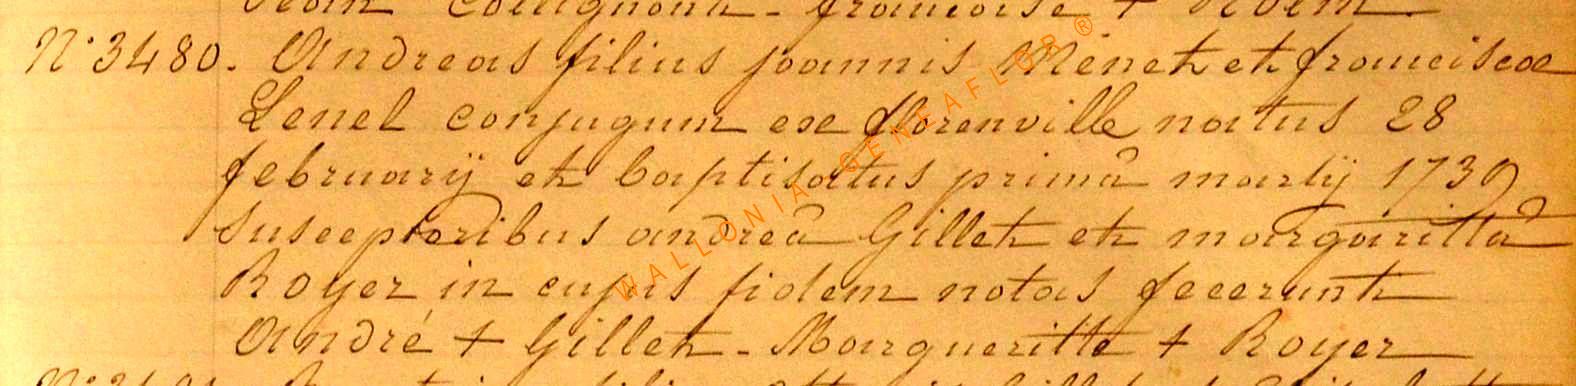 Jean Collignont - françoise + Noëm
N° 3480. Andreas filius joannis Ménet et franciscae
Lenel conjugum ex florenville natus 28
februarÿ et baptisatus primâ martÿ 1739
susceptoribus andreâ Gillet et margarittâ
Royer in cujus fidem notas fecerunt
André + Gillet - Margueritte + Royer
WALLONIA GENEAFLOR ®